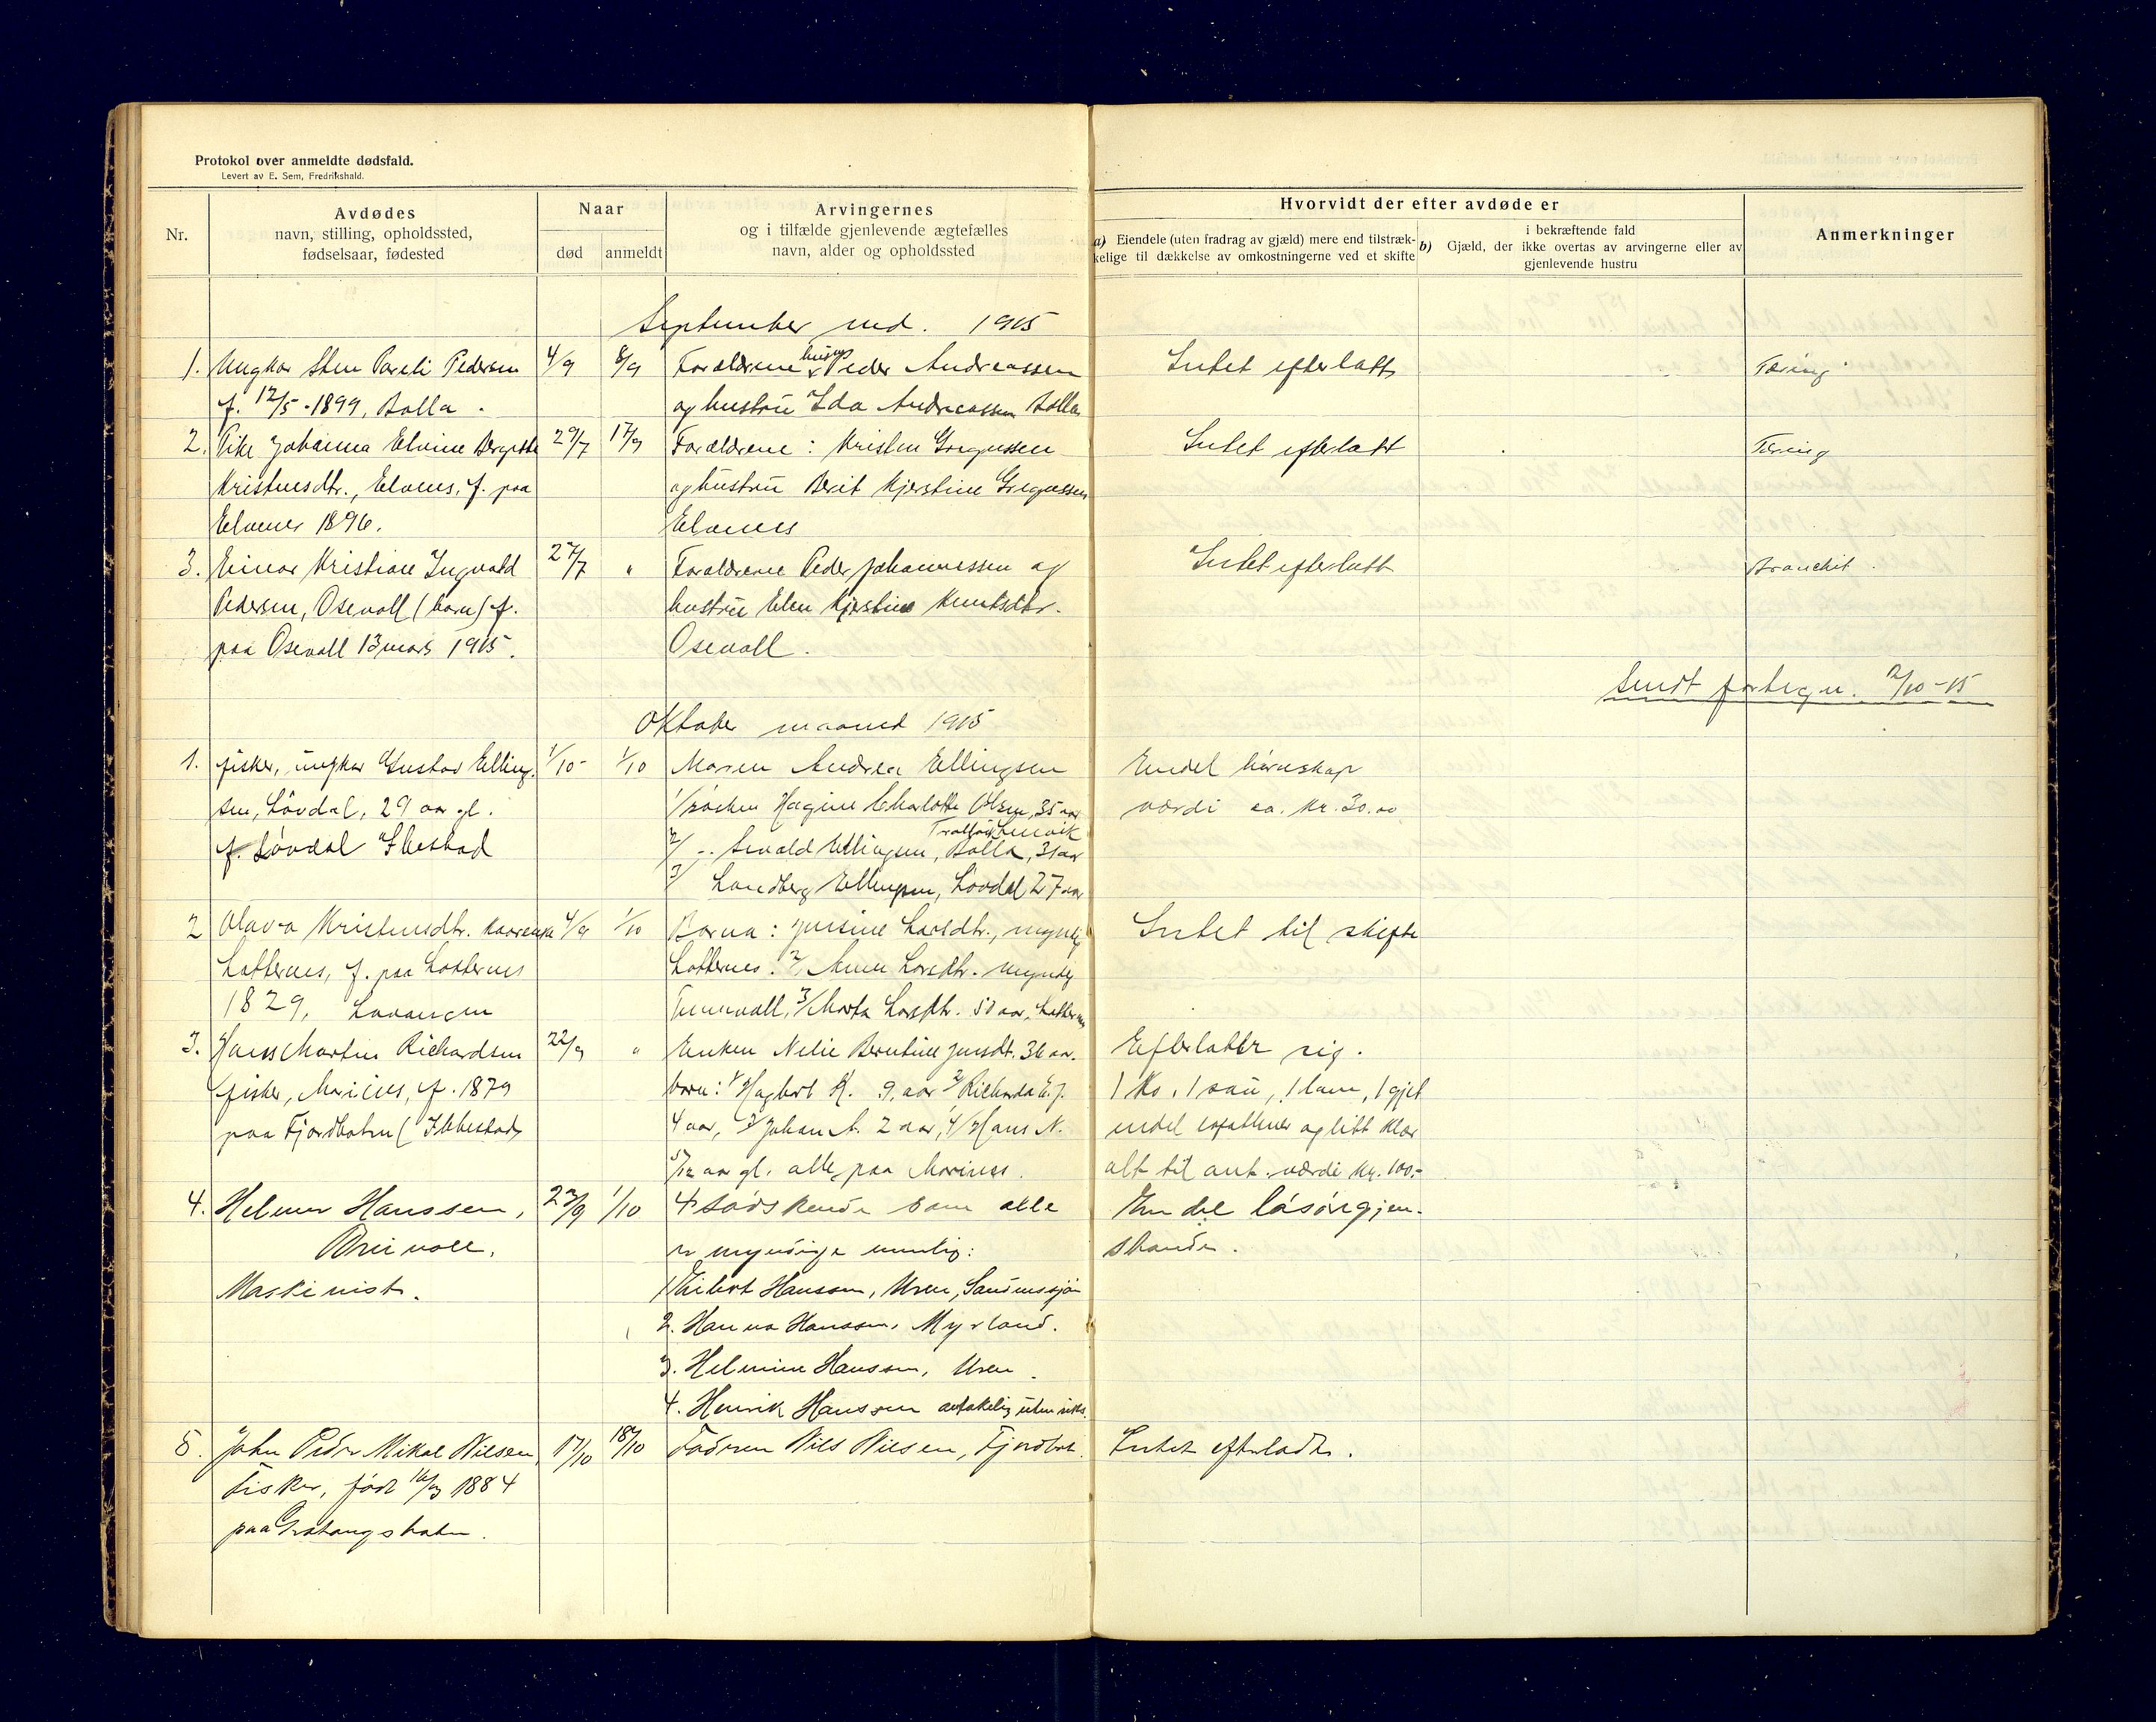 Protokol over anmeldte dødsfald.
Levert av E. Sem, Fredrikshald.
Nr.
Avdødes
navn, stilling, opholdssted,
fødselsaar, fødested
Naar
død
anmeldt
Arvingernes
og i tilfælde gjenlevende ægtefælles
navn, alder og opholdssted
Hvorvidt der efter avdøde er
a) Eiendele (uten fradrag av gjæld) mere end tilstræk-
kelige til dækkelse av omkostningerne ved et skifte
b) Gjæld, der
i bekræftende fald
ikke overtas av arvingerne eller av
gjenlevende hustru
Anmerkninger
September md. 1915
1. Ungkar Sten Pareli Pedersen 4/9 8/9 Forældrene Peder Andreassen Intet efterlatt Tæring
f. 12/5-1899, Bolla. og hustru Ida Andreassen Bolla
2. Pike Johanna Elvine Bergitte 29/7 17/9 Forældrene: Kristen Gregussen Intet efterlatt Tæring
Kristensdtr., Elvenes, f. paa og hustru Berit Kjerstine Gregussen
Elvenes 1896. Elvenes
3. Einar Kristian Ingvald 27/7 " Forældrene Peder Johannessen og Intet efterlatt Bronchit.
Pedersen, Osevoll (barn) f. hustru Elen Kjerstine Knutsdtr.
paa Osevoll 13 mars 1915. Osevoll.
Sendt fortegn. 2/10-15
Oktober maaned 1915
1. fisker, ungkar Gustav Elling- 1/10- 1/10 Maren Andrea Ellingsen Endel
sen, Løvdal, 29 aar gl. 1/ søsken Hagine Charlotte Olsen, 35 aar værdi ca. kr. 30.00
Lenvik
f. Løvdal Ibestad 2/ -.- Sevald Ellingsen, Bolla, 31 aar
3/ Landberg Ellingsen, Løvdal 27 aar
2 Olava Kristensdtr. 4/9 1/10 Barna: Jensine Larsdtr., myndig Intet til skifte
Lotternes, f. paa Lotternes Lotternes. 2/ Anne Larsdtr. myndig
1829, Lavangen Tennevoll, 3/ Marta Larsdtr. 50 aar, Lotternes
3. Hans Martin Richardsen 22/9 " Enken Nelie Berntine Jensdt. 36 aar. Efterlatter sig.
fisker, Marines, f. 1879 barn: 1/ Hagbart H. 9 aar 2/ Richarda E. J. 1 ko, 1 sau, 1 lam, 1 gjet
paa Fjordbotn (Ibbestad) 4 aar, 3/ Johan A. 2 aar, 4/ Hans N. endel og litt klær
5/12 aar gl. alle paa Marines. alt til ant. værdi kr. 100.-
4. Helmer Hanssen, 23/9 1/10 4 sødskende som alle En del løsøregjen-
Breivoll. er myndige nemlig: stande.
Maskinist. 1 Eilert Hanssen, Uren, Sandnessjøen
2. Hanna Hanssen, Myrland.
3. Helmine Hanssen, Uren.
4. Henrik Hanssen antakelig uten riks.
5. John Peder Mikal Nilsen, 17/10 18/10 Fadren Nils Nilsen, Fjordbot. Intet efterladt.
Fisker, født 16/3 1884
paa Gratangsbotn.